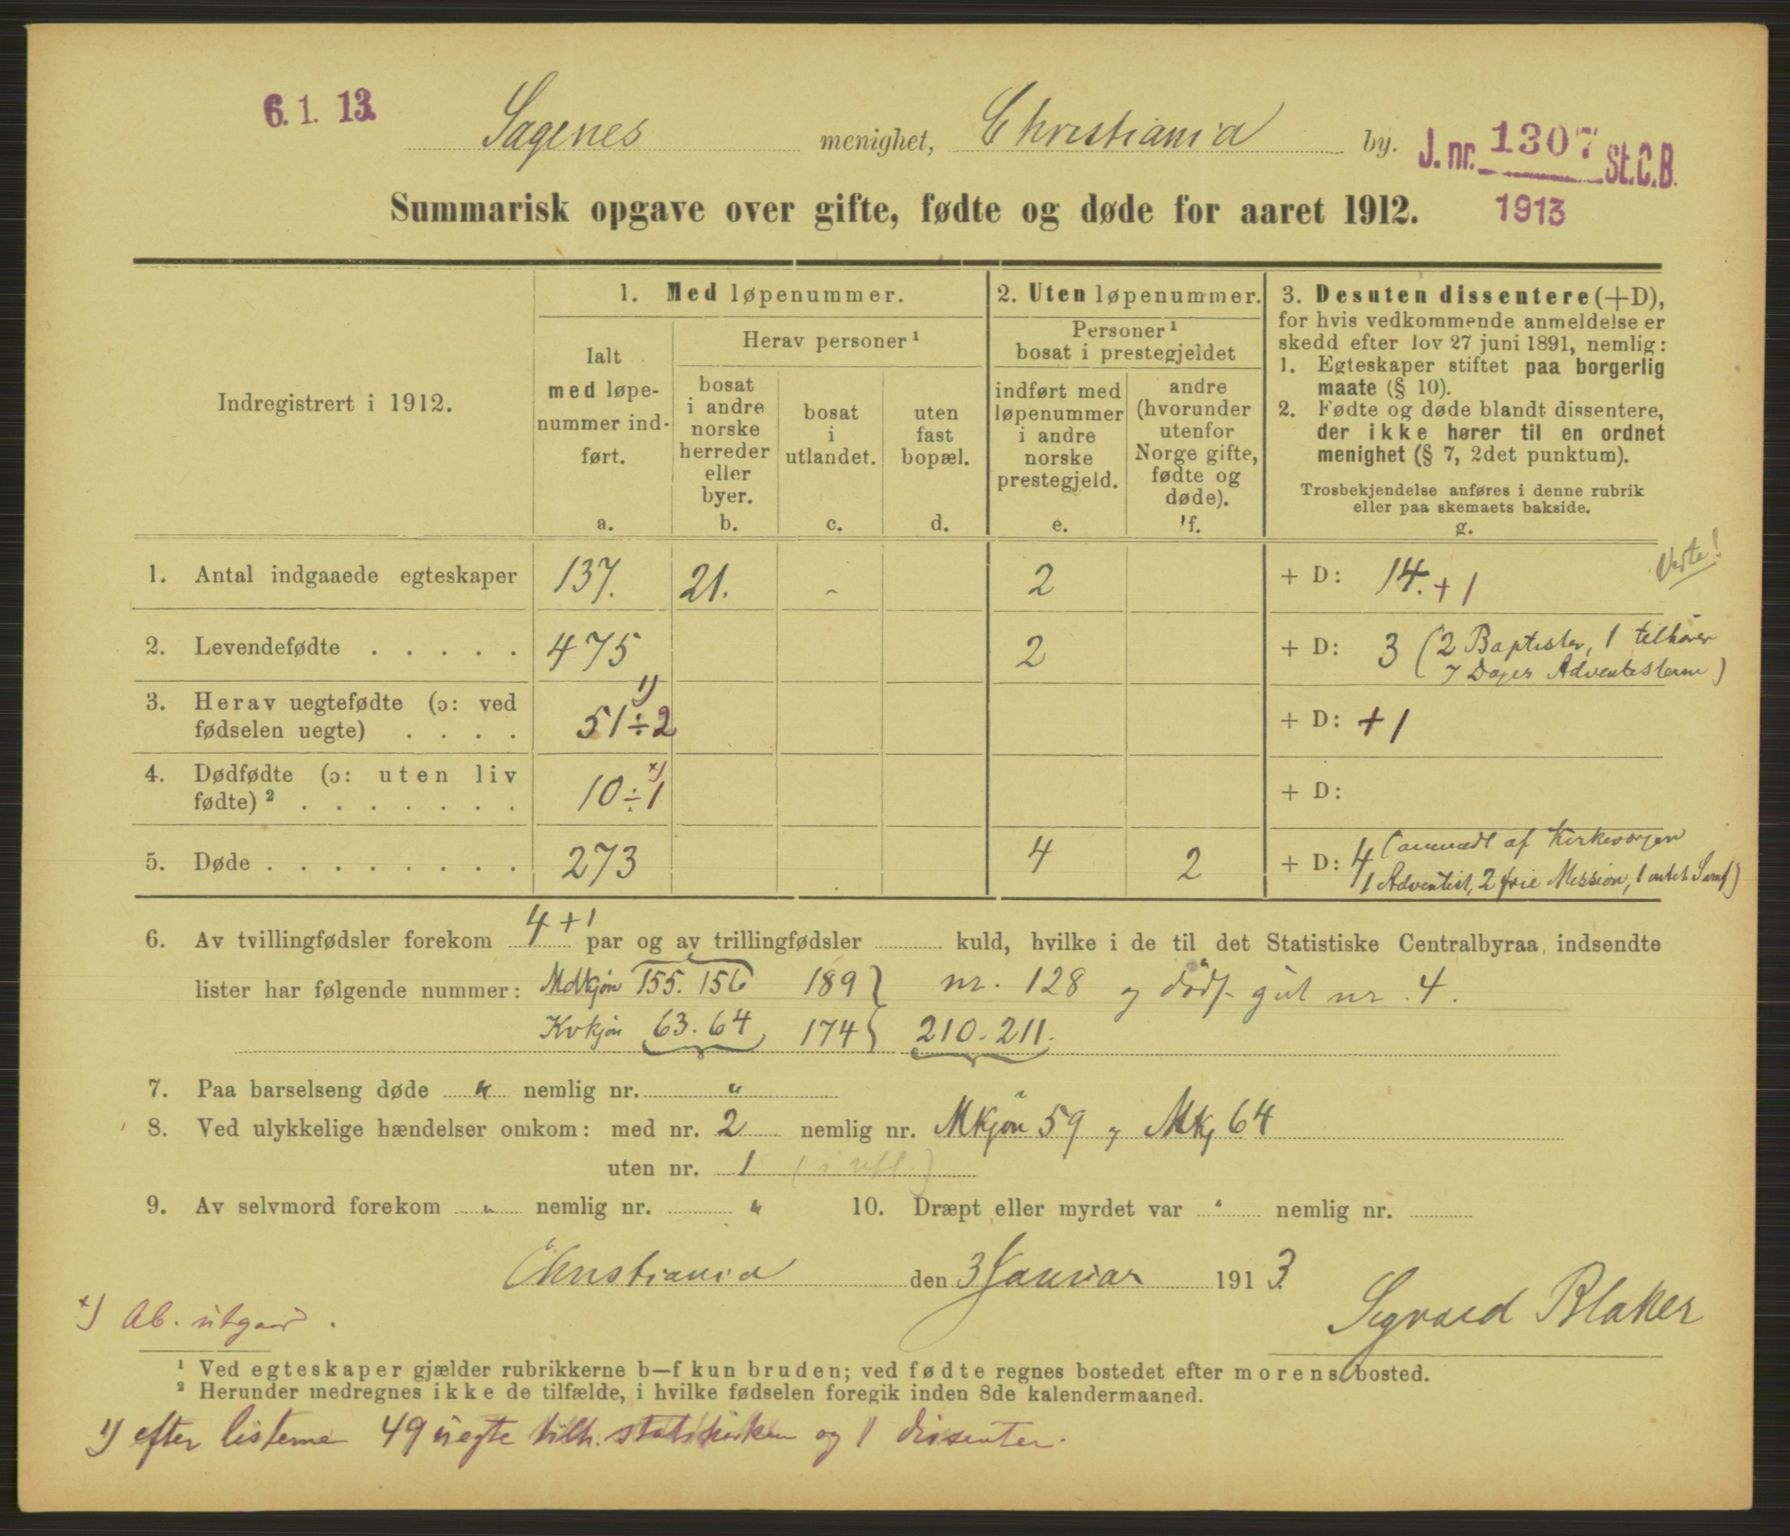 6. 1. 13.
Sagenes menighet, Christiania by.
J. nr. 1307 St. C. B.
1913
Summarisk opgave over gifte, fødte og døde for aaret 1912.
Indregistrert i 1912.
1. Med løpenummer.
Ialt
med løpe-
nummer ind-
ført.
a.
Herav personer ¹
bosat
i andre
norske
herreder
eller
byer.
b.
bosat
i
utlandet.
c.
uten
fast
bopæl.
d.
2. Uten løpenummer.
Personer ¹
bosat i prestegjeldet
indført med
løpenummer
i andre
norske
prestegjeld.
e.
andre
(hvorunder
utenfor
Norge gifte,
fødte og
døde).
f.
3. Desuten dissentere (+D),
for hvis vedkommende anmeldelse er
skedd efter lov 27 juni 1891, nemlig:
1. Egteskaper stiftet paa borgerlig
maate (§ 10).
2. Fødte og døde blandt dissentere,
der ikke hører til en ordnet
menighet (§ 7, 2det punktum).
Trosbekjendelse anføres i denne rubrik
eller paa skemaets bakside.
g.
1. Antal indgaaede egteskaper 137. 21. - 2 + D: 14. + 1
2. Levendefødte . . . . . 475 2 + D: 3 (2 Baptister, 1 tilhører
7 Dages Adventisterne)
3. Herav uegtefødte (ɔ: ved
fødselen uegte) . . . . 51 ÷ 2 ¹) + D: + 1
4. Dødfødte (ɔ: uten liv
fødte) ² . . . . . . . 10 ÷ 1 ×) + D:
5. Døde . . . . . . . . 273 4 2 + D: 4 (anmeldt af Kirkeværgen
1 Adventist, 2 frie Mission, 1 Samf)
6. Av tvillingfødsler forekom 4 + 1 par og av trillingfødsler kuld, hvilke i de til det Statistiske Centralbyraa indsendte
lister har følgende nummer: Mdkjøn 155. 156 189 } nr. 128 og dødf. gut nr. 4.
Kvkjøn 63. 64 174 } 210 - 211.
7. Paa barselseng døde " nemlig nr. "
8. Ved ulykkelige hændelser omkom: med nr. 2 nemlig nr. Mkjøn 59 og Mkj 64
uten nr. 1
9. Av selvmord forekom " nemlig nr. " 10. Dræpt eller myrdet var " nemlig nr.
Christiania den 3 Januar 1913.
Sigvard Blaker
×) Ab. utgaar.
¹ Ved egteskaper gjælder rubrikkerne b—f kun bruden; ved fødte regnes bostedet efter morens bosted.
² Herunder medregnes ikke de tilfælde, i hvilke fødselen foregik inden 8de kalendermaaned.
¹) efter listerne 49 uegte tilh. statskirken og 1 dissenter.